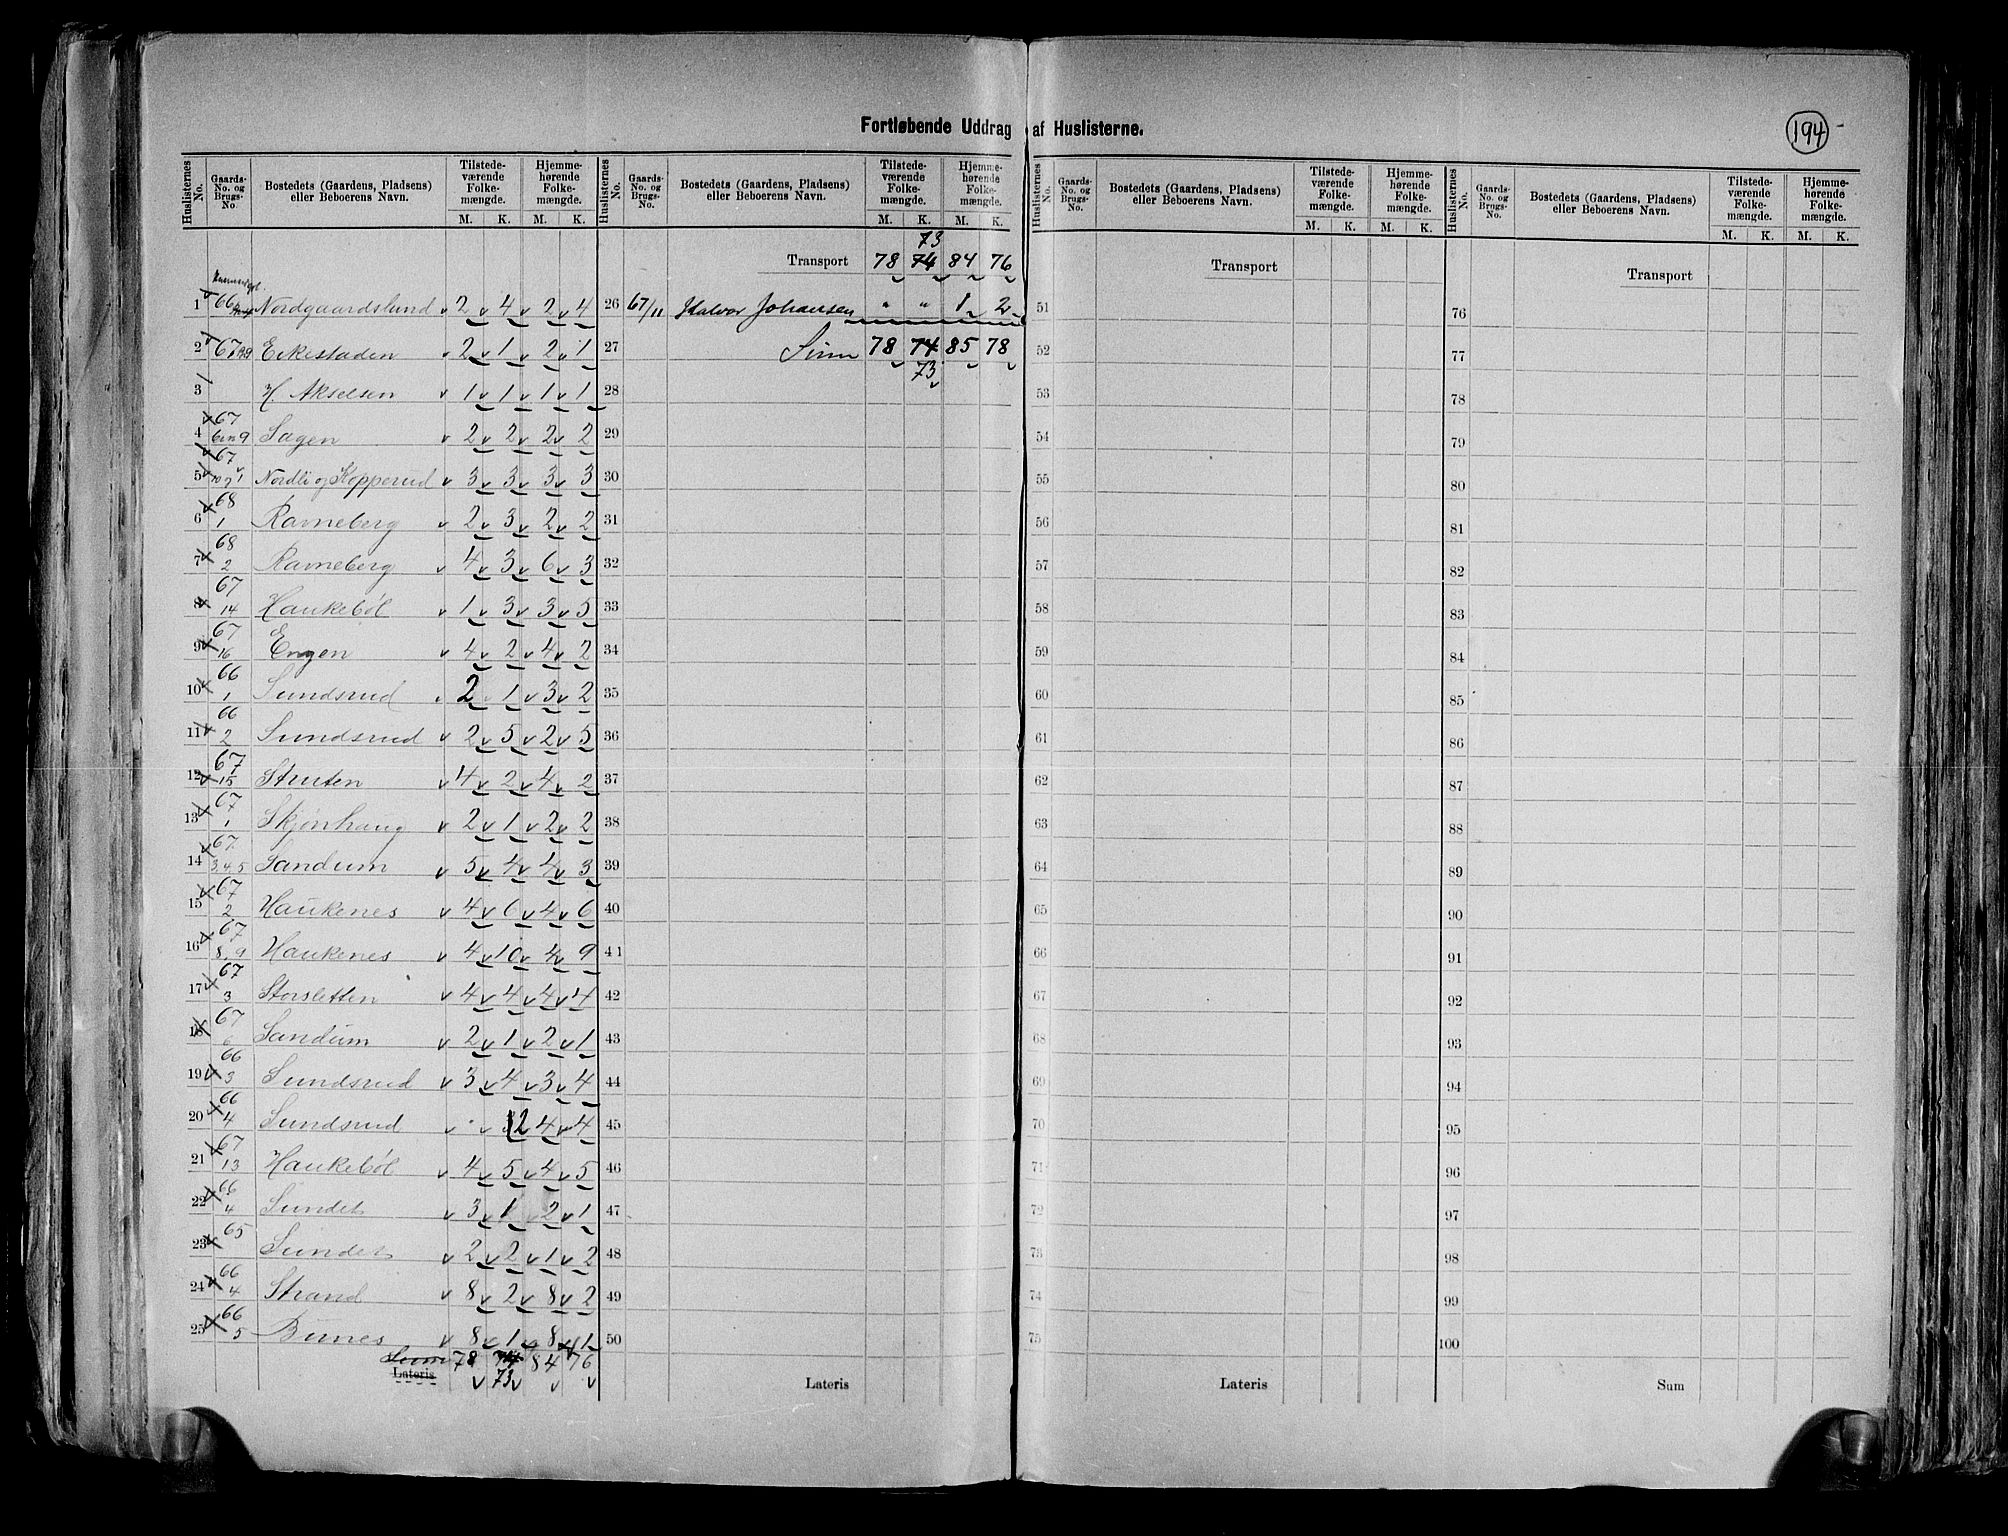 194
Fortløbende Uddrag af Huslisterne.
Huslisternes No. Gaards-No. og Brugs-No. Bostedets (Gaardens, Pladsen) eller Beboerens Navn. Tilstedeværende Folkemængde. M. K. Hjemmehørende Folkemængde. M. K.
1 66 Nordgaardslund 2 4 2 4
2 67 2 1 2 1
3 H. Akselsen 1 1 1 1
4 67 6 9 Sagen 2 2 2 2
5 67 Nordli og Kopperud 3 3 3 3
6 68 1 Ravneberg 2 3 2 2
7 68 2 Ravneberg 4 3 6 3
8 67 14 Haukebøl 1 3 3 5
9 67 16 Engen 4 2 4 2
10 66 1 Sundsrud 2 1 3 2
11 66 2 Sundsrud 2 5 2 5
12 67 15 Struten 4 2 4 2
13 67 1 Skjønhaug 2 1 2 2
14 67 3,4,5 Sandum 5 4 4 3
15 67 2 Haukenes 4 6 4 6
16 67 8,9 Haukenes 4 10 4 9
17 67 3 Storsletten 4 4 4 4
18 67 6 Sandum 2 1 2 1
19 66 3 Sundsrud 3 4 3 4
20 66 4 Sundsrud " 2 4 4
21 67 13 Haukebøl 4 5 4 5
22 66 4 Sundet 3 1 2 1
23 65 Sundet 2 2 1 2
24 66 4 Strand 8 2 8 2
25 66 5 Bunes 8 1 8 1
Sum 78 74 84 76
Lateris 73
Huslisternes No. Gaards-No. og Brugs-No. Bostedets (Gaardens, Pladsen) eller Beboerens Navn. Tilstedeværende Folkemængde. M. K. Hjemmehørende Folkemængde. M. K.
73
Transport 78 74 84 76
26 67/11 Halvor Johansen " " 1 2
27 Sum 78 74 85 78
73
28
29
30
31
32
33
34
35
36
37
38
39
40
41
42
43
44
45
46
47
48
49
50
Lateris
Huslisternes No. Gaards-No. og Brugs-No. Bostedets (Gaardens, Pladsen) eller Beboerens Navn. Tilstedeværende Folkemængde. M. K. Hjemmehørende Folkemængde. M. K.
Transport
51
52
53
54
55
56
57
58
59
60
61
62
63
64
65
66
67
68
69
70
71
72
73
74
75
Lateris
Huslisternes No. Gaards-No. og Brugs-No. Bostedets (Gaardens, Pladsen) eller Beboerens Navn. Tilstedeværende Folkemængde. M. K. Hjemmehørende Folkemængde. M. K.
Transport
76
77
78
79
80
81
82
83
84
85
86
87
88
89
90
91
92
93
94
95
96
97
98
99
100
Sum